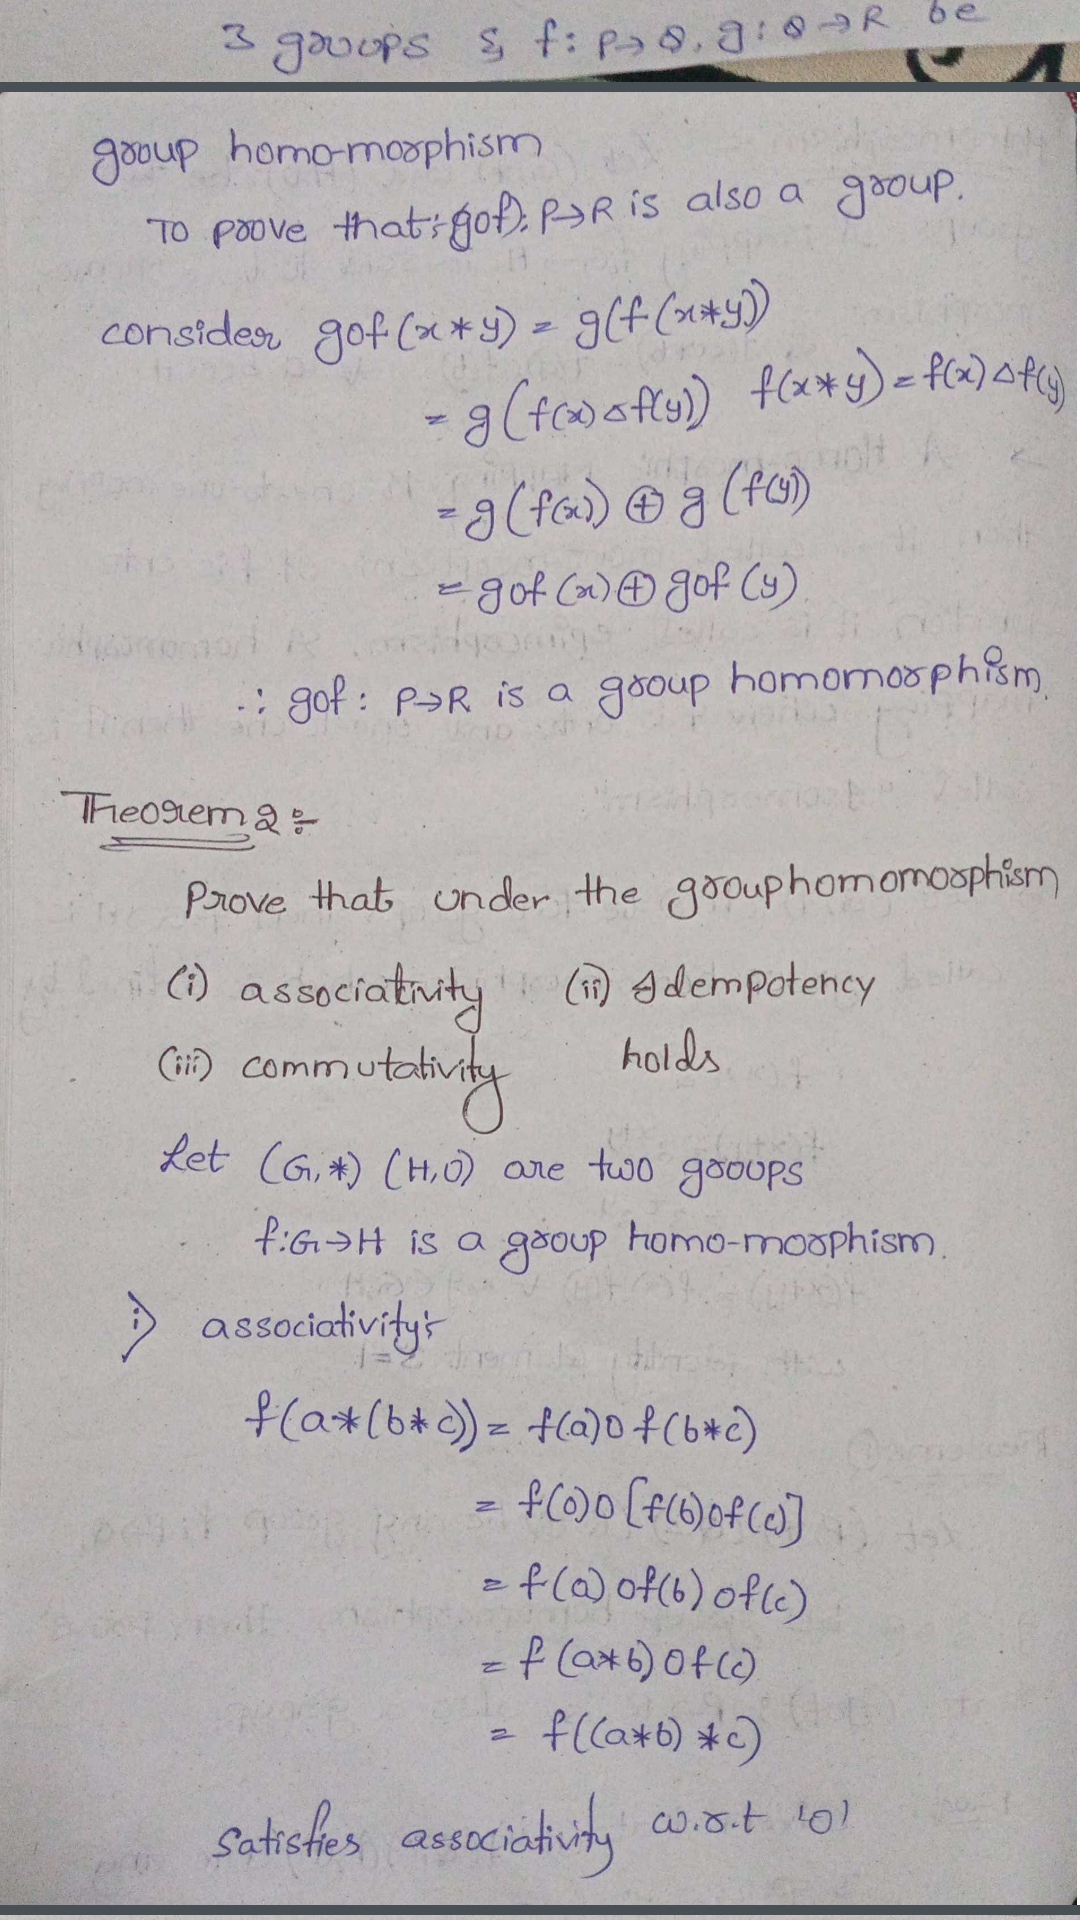 3 groups & f: P→Q, g: Q→R be
group homo-morphism
To prove that:- (gof): P→R is also a group.
consider gof(x*y) = g(f(x*y))
= g(f(x)△f(y)) f(x*y) = f(x)△f(y)
= g(f(x)) ⊕ g(f(y))
= gof(x) ⊕ gof(y)
∴ gof: P→R is a group homomorphism.
Theorem 2:-
Prove that under the grouphomomorphism
(i) associativity (ii) Idempotency
(iii) commutativity holds
Let (G,*) (H,O) are two groups
f:G→H is a group homo-morphism.
i) associativity:-
f(a*(b*c)) = f(a)O f(b*c)
= f(a)O[f(b)Of(c)]
= f(a)Of(b)Of(c)
= f(a*b)Of(c)
= f((a*b)*c)
satisfies associativity w.r.t 'O'